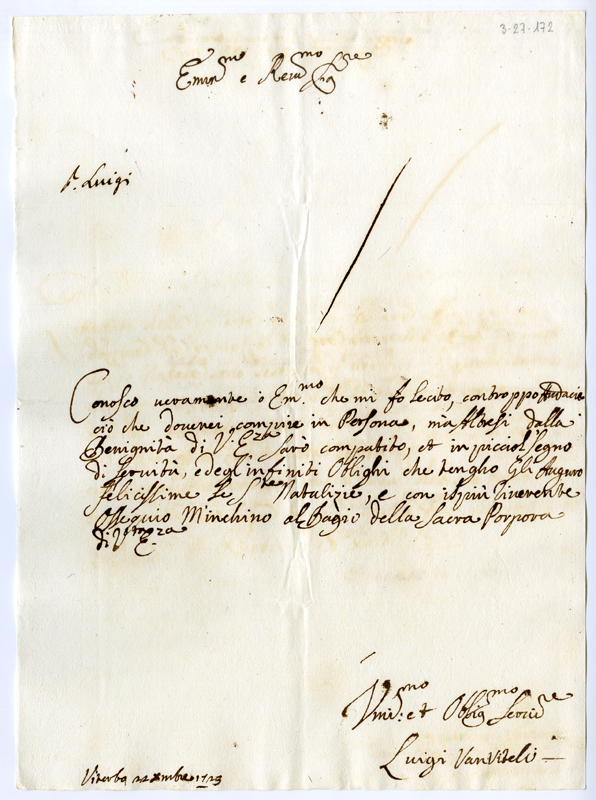 3-27-172
Emin.mo e Reu.mo Sig.re
P. Luigi
Conosco ueramente ò Em.mo che mi fo lecito, con troppo Audacia
ciò che douerei compire in Persona, mà altresi dalla
Benignità di V. E.za sarò compatito, et in picciol segno
di seruità, e degl'infiniti Oblighi che tengho Gli Auguro
felicissime le S.te Natalizie, e con il più riuerente
Ossequio M'inchino al Bagio della Sacra Porpora
di V. Em.za
Vmi.mo et Obblig.mo Seruid.re
Luigi VanViteli
Viterbo 22 Xmbre 1723